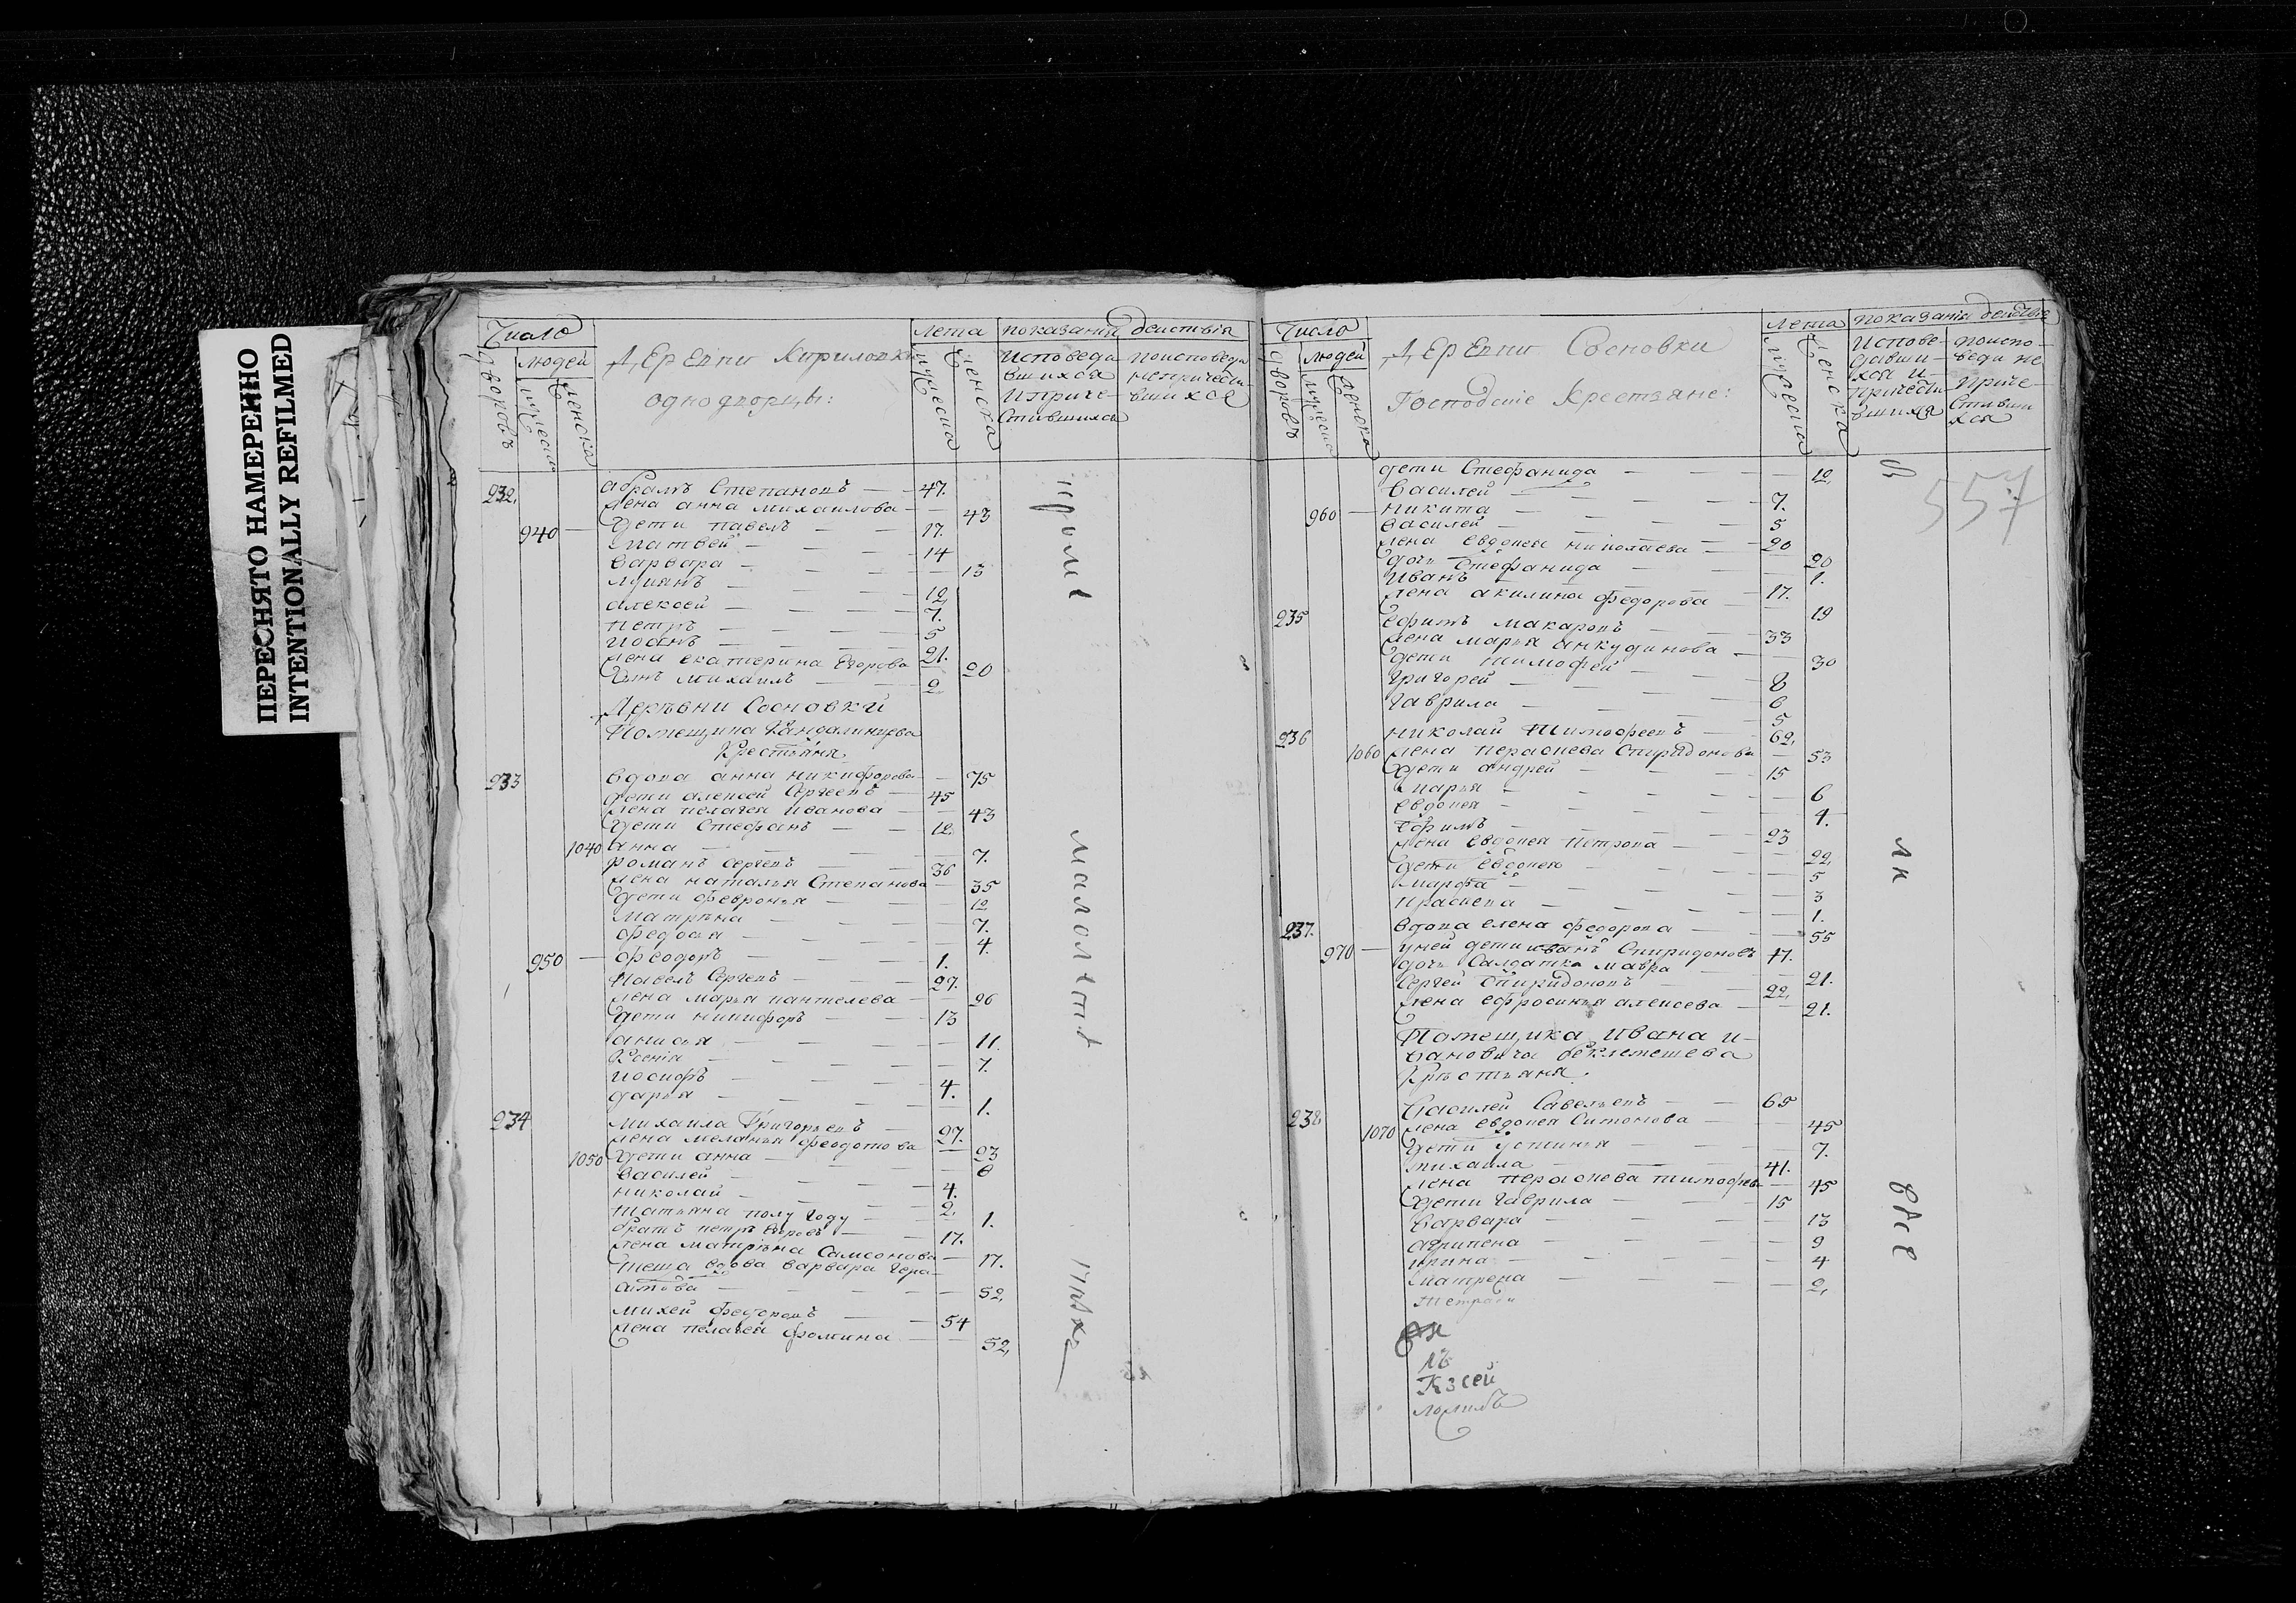 ПЕРЕСНЯТО НАМЕРЕННО
INTENTIONALLY REFILMED
Число
дворовъ
людей
мужеска
женска
Деревни Кириловки
однодворцы:
лета
мужеска
женска
показании действия
исповеда
вшихся
и приче-
стившихся
по исповеди
непричести-
вшихся
232. абрамъ Степановъ — 47.
жена анна михаилова — 43
940 — дети павелъ — 17.
матвей — 14
варвара — 13
лукианъ — 12,
алексей — 7.
петръ — 5
иоанъ — 21.
жена екатерина Егорова 20
сынъ михаилъ — 2
Деревни Сосновки
Помещика
крестьяня
233 вдова анна никифорова — 75
дети алексей Сергеевъ — 45
жена пелагея иванова — 43
дети Стефанъ — 12.
1040 анна — 7.
романъ сергеевъ — 36
жена наталья Степанова — 35
дети февронья — 12
матрена — 7.
федосья — 4.
950 — феодоръ — 1.
Павелъ Сергеевъ — 27.
жена марья пантелева — 26
дети никифоръ — 13
анисья — 11.
Ксения — 7.
иосифъ — 4.
дарья — 1.
234 михаила Григорьевъ — 27.
жена меланья феодотова — 23
1050 дети анна — 6
василей — 4.
николай — 2.
татьяна полу году — 1.
братъ петръ — 17.
жена матрена Самсонова — 17.
теща вдова варвара гера-
симова — 52,
михей федоровъ — 54
жена пелагея фомина — 52,
кроме
малолетнѣ
Число
дворовъ
людей
мужеска
женска
Деревни Сосновки
Господские крестьяне:
лета
мужеска
женска
показания действие
исповѣ-
давши-
хся и
причести
вшихся
по испо-
веди не
приче-
стивши
хся
557
дети Стефанида — 12,
василей — 7.
960 — никита — 5
василей — 20
жена евдокея николаева — 20
дочь Стефанида — 1.
иванъ — 17.
жена акилина федорова — 19
235 ефимъ макаровъ — 33
жена марья анкудинова — 30
дети тимофей — 8
григорей — 6
гаврила — 5
236 николай Тимофеевъ — 62,
1060 жена пераскева Спиридонова — 53
дети андрей — 15
марья — 6
евдокея — 4.
ефимъ — 23
жена евдокея петрова — 22,
дети евдокея — 5
марфа — 3
праскева — 1.
237. вдова елена федорова — 55
970 — у ней дети иванъ Спиридоновъ 17.
дочь Салдатка мавра — 21.
Сергей Спиридоновъ — 22,
жена ефросинья алексева — 21.
Помещика ивана и-
вановича беклемешева
крестьяня.
238, Василей Савельевъ — 65
1070 жена евдокея Симонова — 45
дети устинья — 7.
михаила — 41.
жена пераскева тимофев — 45
дети гаврила — 15
варвара — 13
агрипена — 9
ирина — 4
матрена — 2,
все